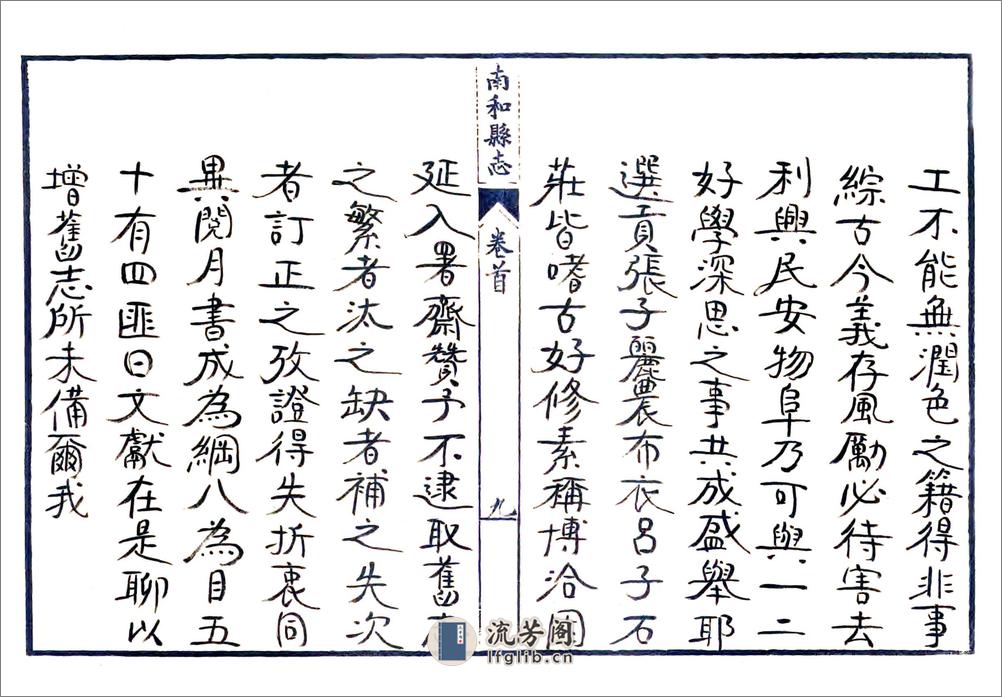 工不能無潤色之籍得非事
綜古今義存風勵必待害去
利興民安物阜乃可與一二
好學深思之事共成盛舉耶
選貢張子麗農布衣呂子石
莊皆嗜古好修素稱博洽因
南和縣志
卷首
九
延入署齋贊予不逮取舊
之繁者汰之缺者補之失次
者訂正之攷證得失折衷同
異閱月書成為綱八為目五
十有四匪曰文獻在是聊以
增舊志所未備爾我
流芳阁
lfglib.cn